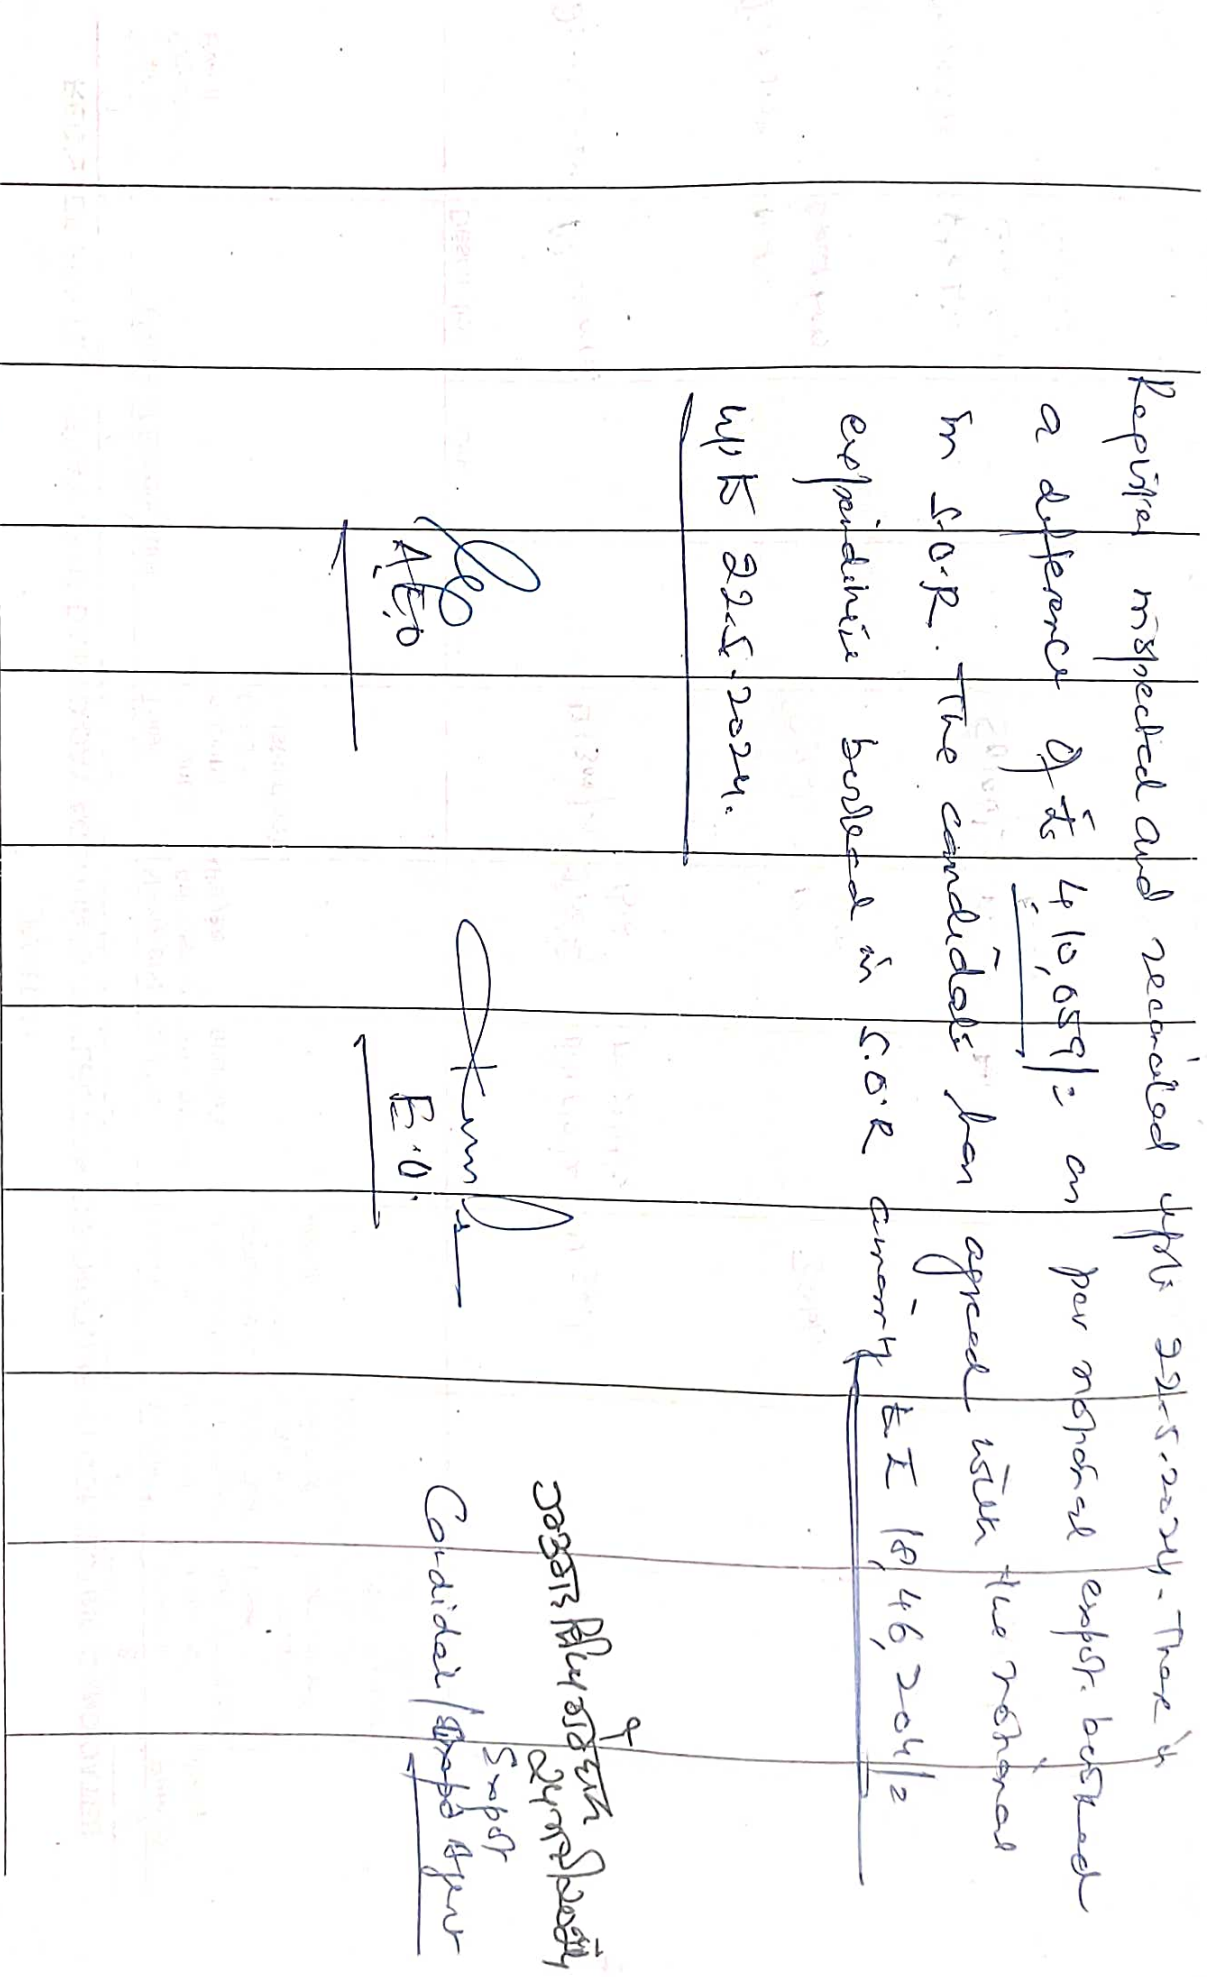 Register inspected and reconciled upto 22.5.2024. There is
a difference of ₹ 410,059/= as per notional exptr. booked
in S.O.R. The candidate has agreed with the notional
expenditure booked in S.O.R amounty to ₹ 18,46,204/=
upto 22.5.2024.
A.E.O
E.O.
Candidate / Agent
Exptr